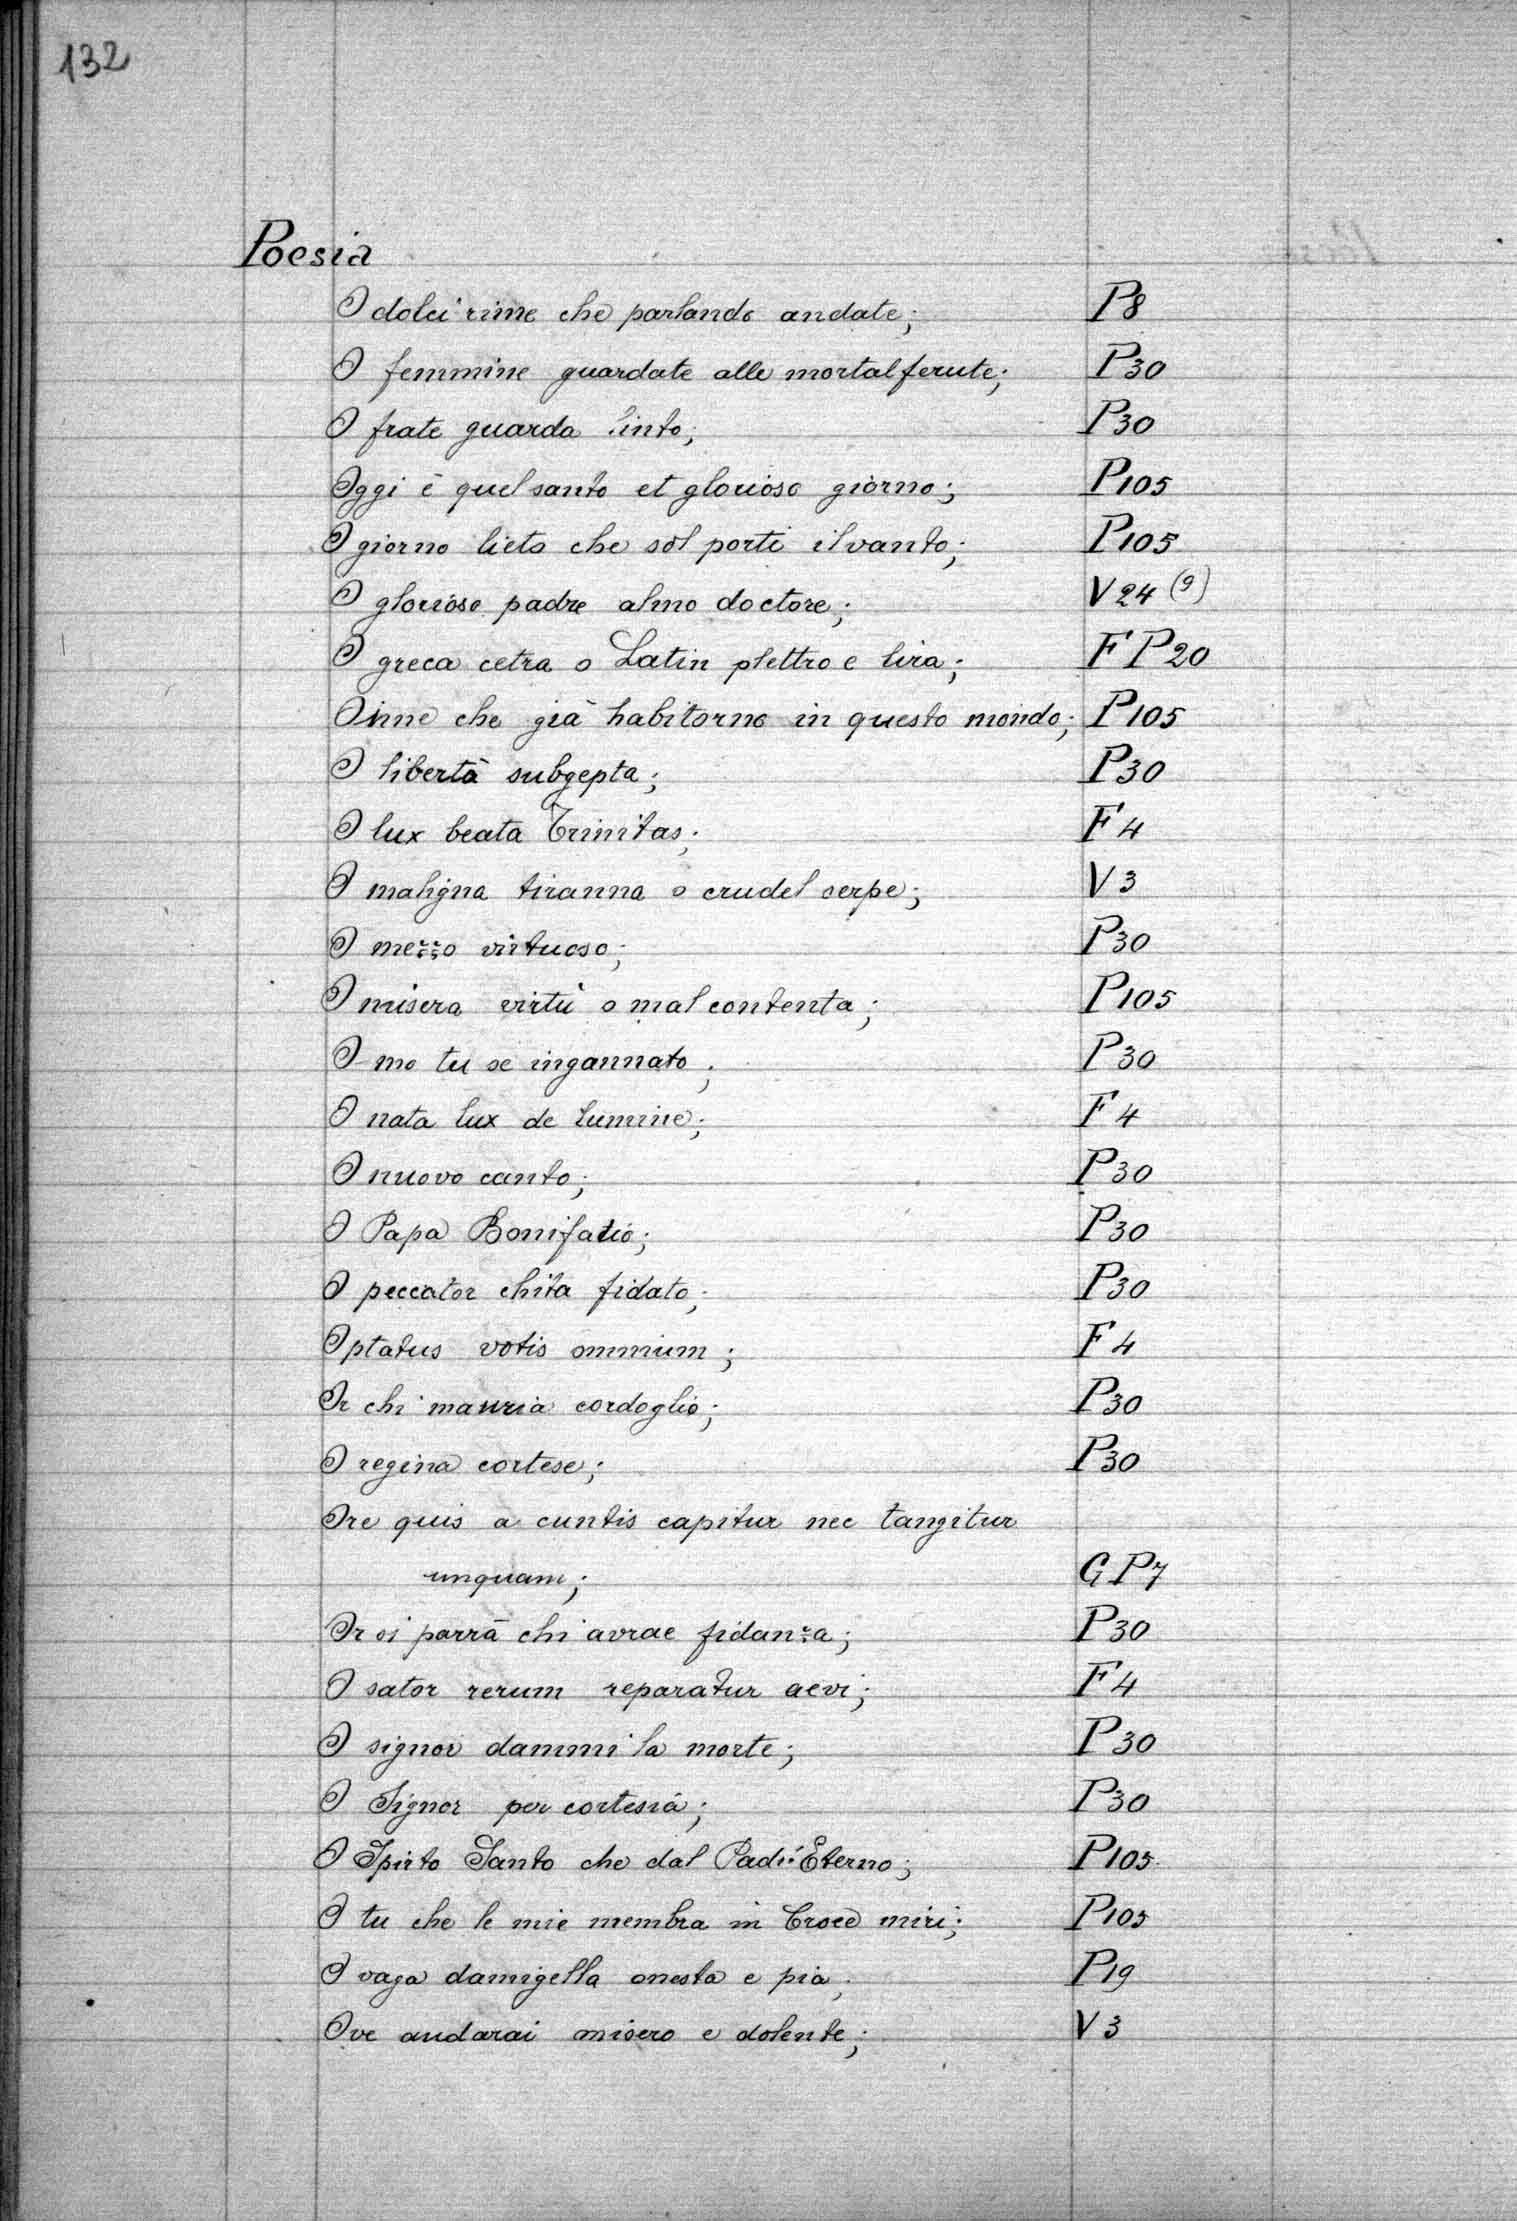 132
Poesia
O dolci rime che parlando andate; P8
O femmine guardate alle mortal ferute; P30
O frate guarda linto; P30
Oggi è quel santo et glorioso giorno; P105
O giorno lieto che sol porti il vanto; P105
O glorioso padre almo doctore; V24 (9)
O greca cetra o Latin plettro e lira; FP20
Oime che già habitorno in questo mondo; P105
O libertà subgepta; P30
O lux beata Trinitas; F4
O maligna tiranna o crudel serpe; V3
O mezzo virtuoso; P30
O misera virtù o mal contenta; P105
O mo tu se ingannato; P30
O nata lux de lumine; F4
O nuovo canto; P30
O Papa Bonifatio; P30
O peccator chita fidato; P30
Optatus votis omnium; F4
Or chi mauria cordoglio; P30
O regina cortese; P30
Ore quis a cuntis capitur nec tangitur
unquam; GP7
Or si parrà chi avrae fidanza; P30
O sator rerum reparatur aevi; F4
O signor dammi la morte; P30
O Signor per cortesia; P30
O Spirto Santo che dal Padr' Eterno; P105
O tu che le mie membra in Croce miri; P105
O vaga damigella onesta e pia; P19
Ove andarai misero e dolente; V3